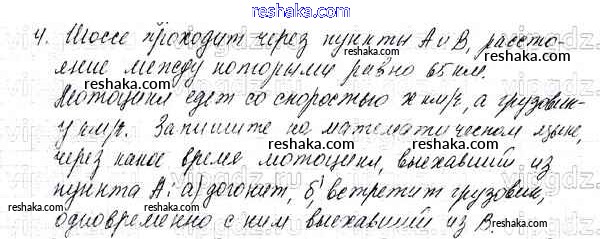 reshaka.com
4. Шоссе проходит через пункты А и В, рассто-
яние между которыми равно 65 км.
Мотоцикл едет со скоростью х км/ч, а грузовик-
у км/ч. Запишите на математическом языке,
через какое время мотоцикл, выехавший из
пункта А: а) догонит, б) встретит грузовик,
одновременно с ним выехавший из В.
reshaka.com